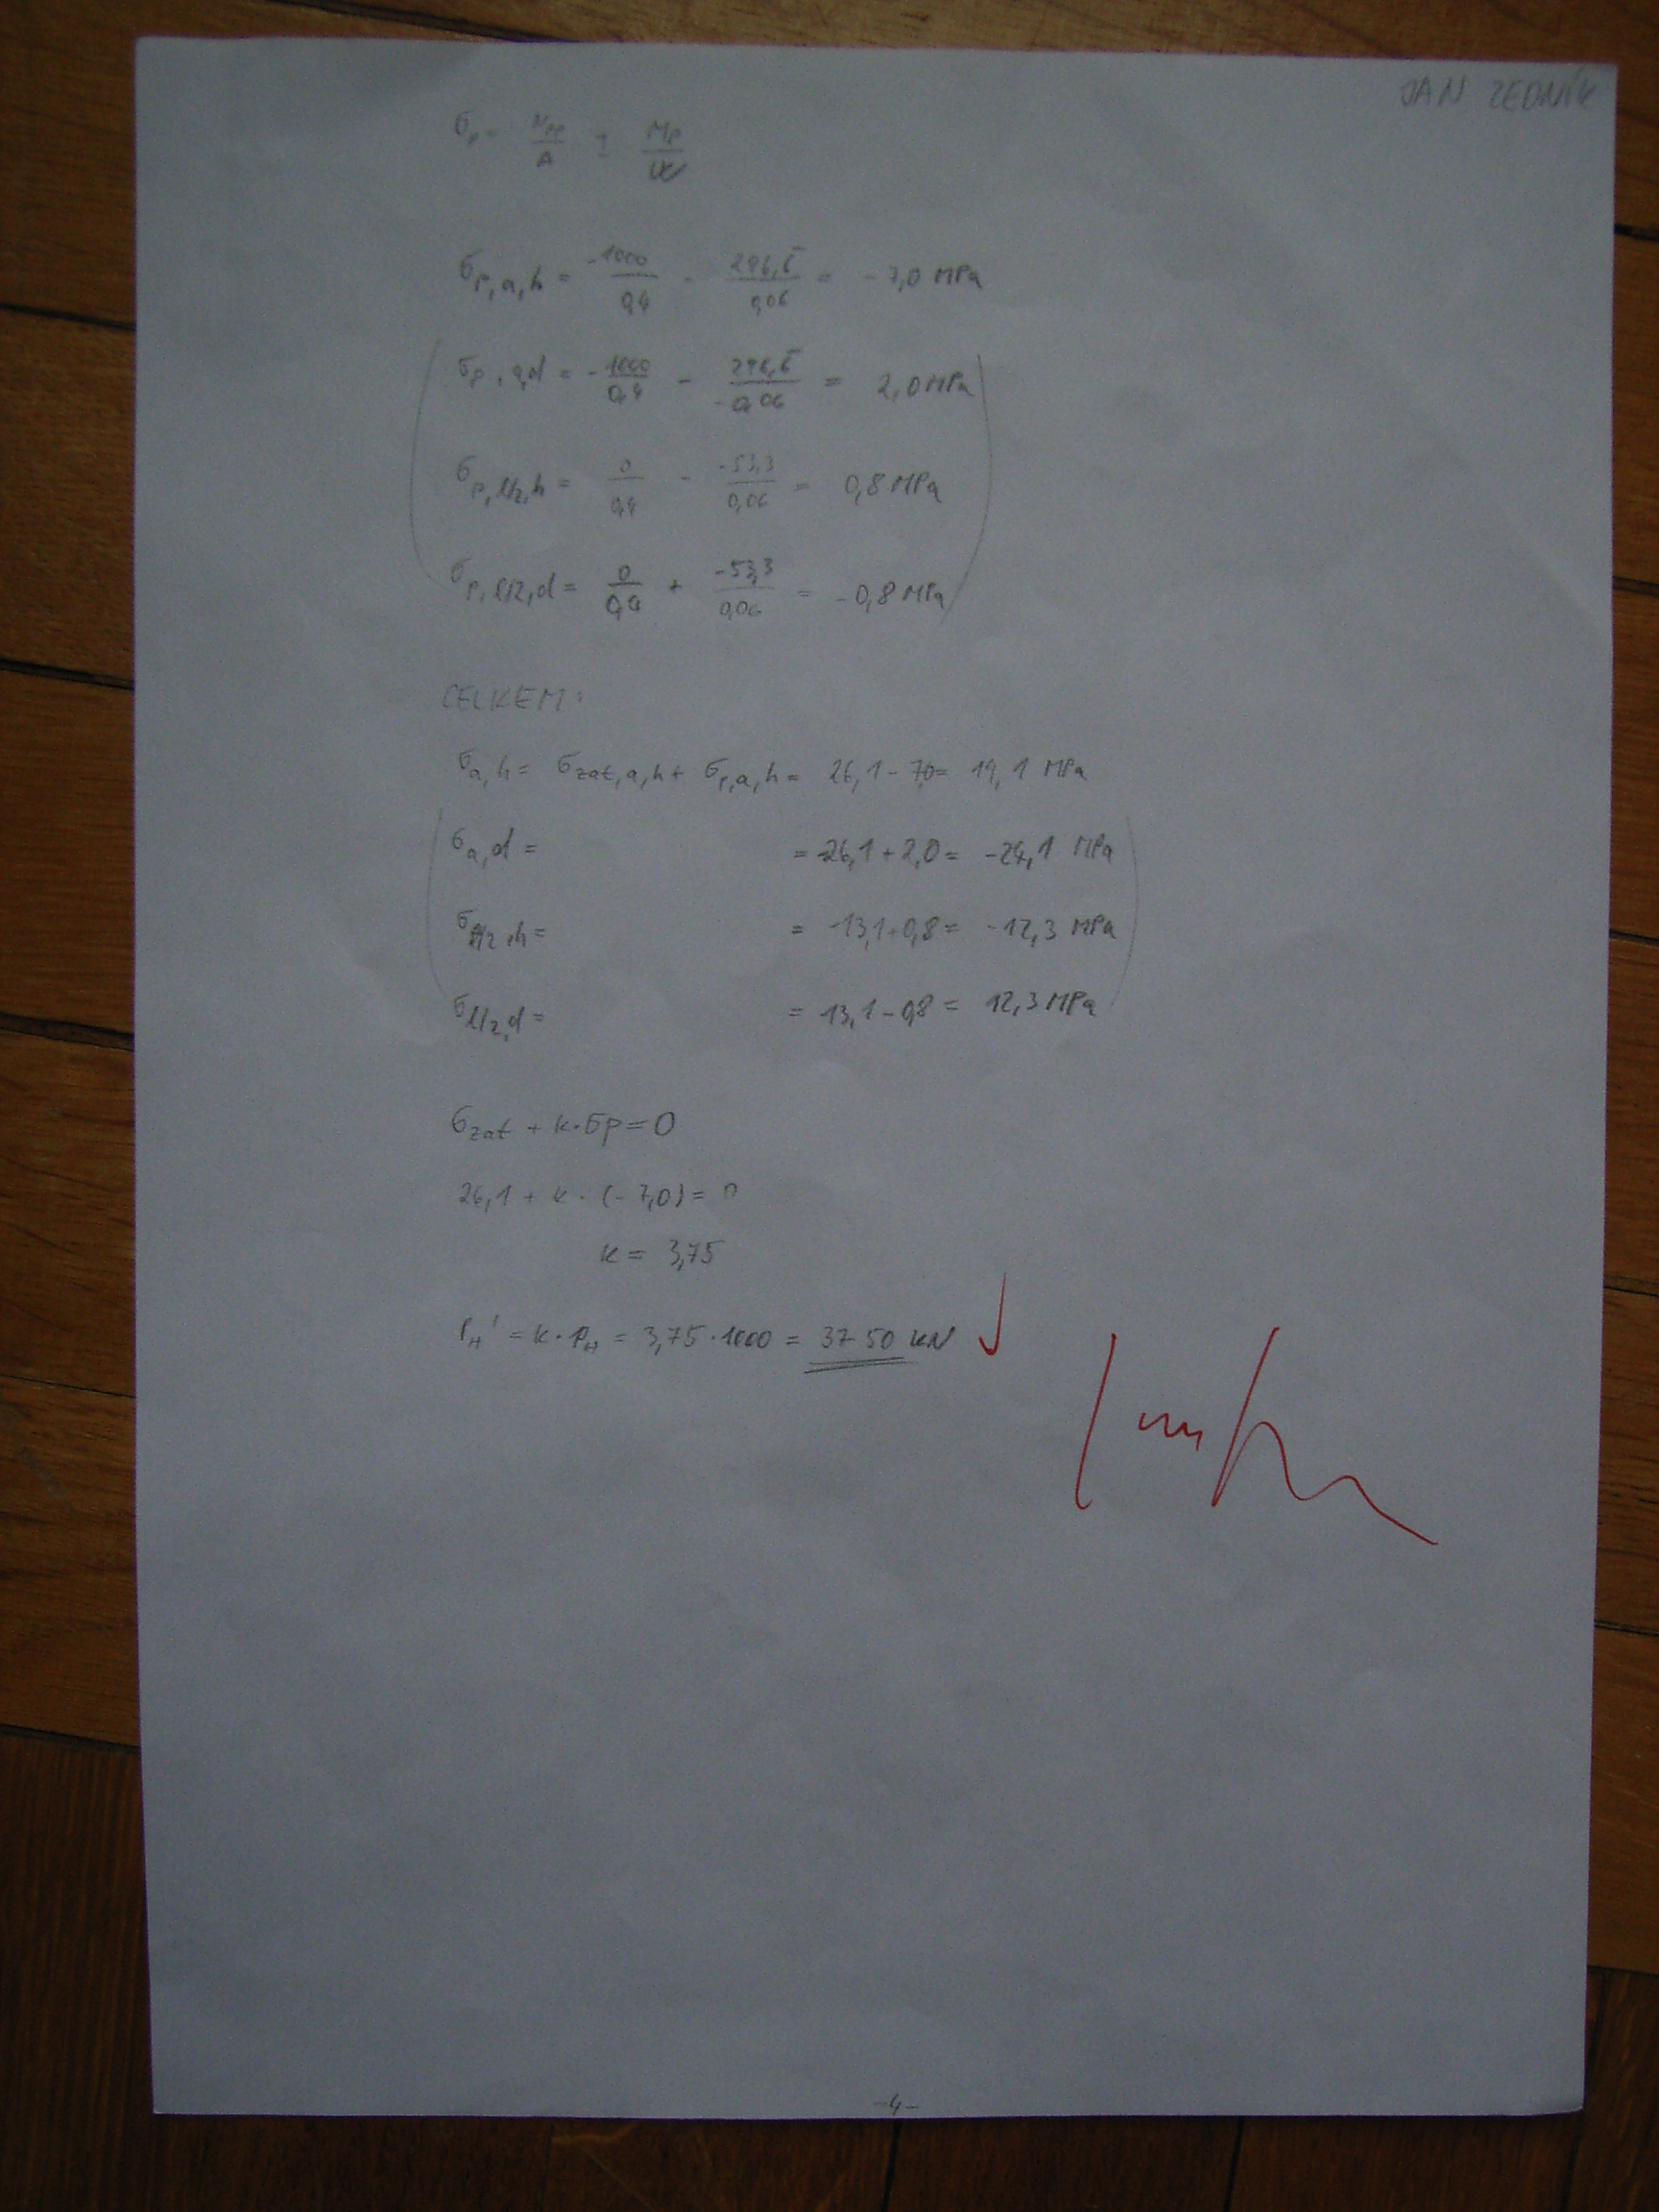 JAN ZEDNÍK
σp = Npp/A ± Mp/W
σp,a,h = -1000/0,4 - 296,5/0,06 = -7,0 MPa
σp,a,d = -1000/0,4 - 296,5/-0,06 = 2,0 MPa
σp,l/2,h = 0/0,4 - -53,3/0,06 = 0,8 MPa
σp,l/2,d = 0/0,4 + -53,3/0,06 = -0,8 MPa
CELKEM:
σa,h = σzat,a,h + σp,a,h = 26,1 - 7,0 = 19,1 MPa
σa,d = = -26,1 + 2,0 = -24,1 MPa
σl/2,h = = -13,1 + 0,8 = -12,3 MPa
σl/2,d = = 13,1 - 0,8 = 12,3 MPa
σzat + k·σp = 0
26,1 + k · (-7,0) = 0
k = 3,75
PH' = k · PH = 3,75 · 1000 = 3750 kN
-4-